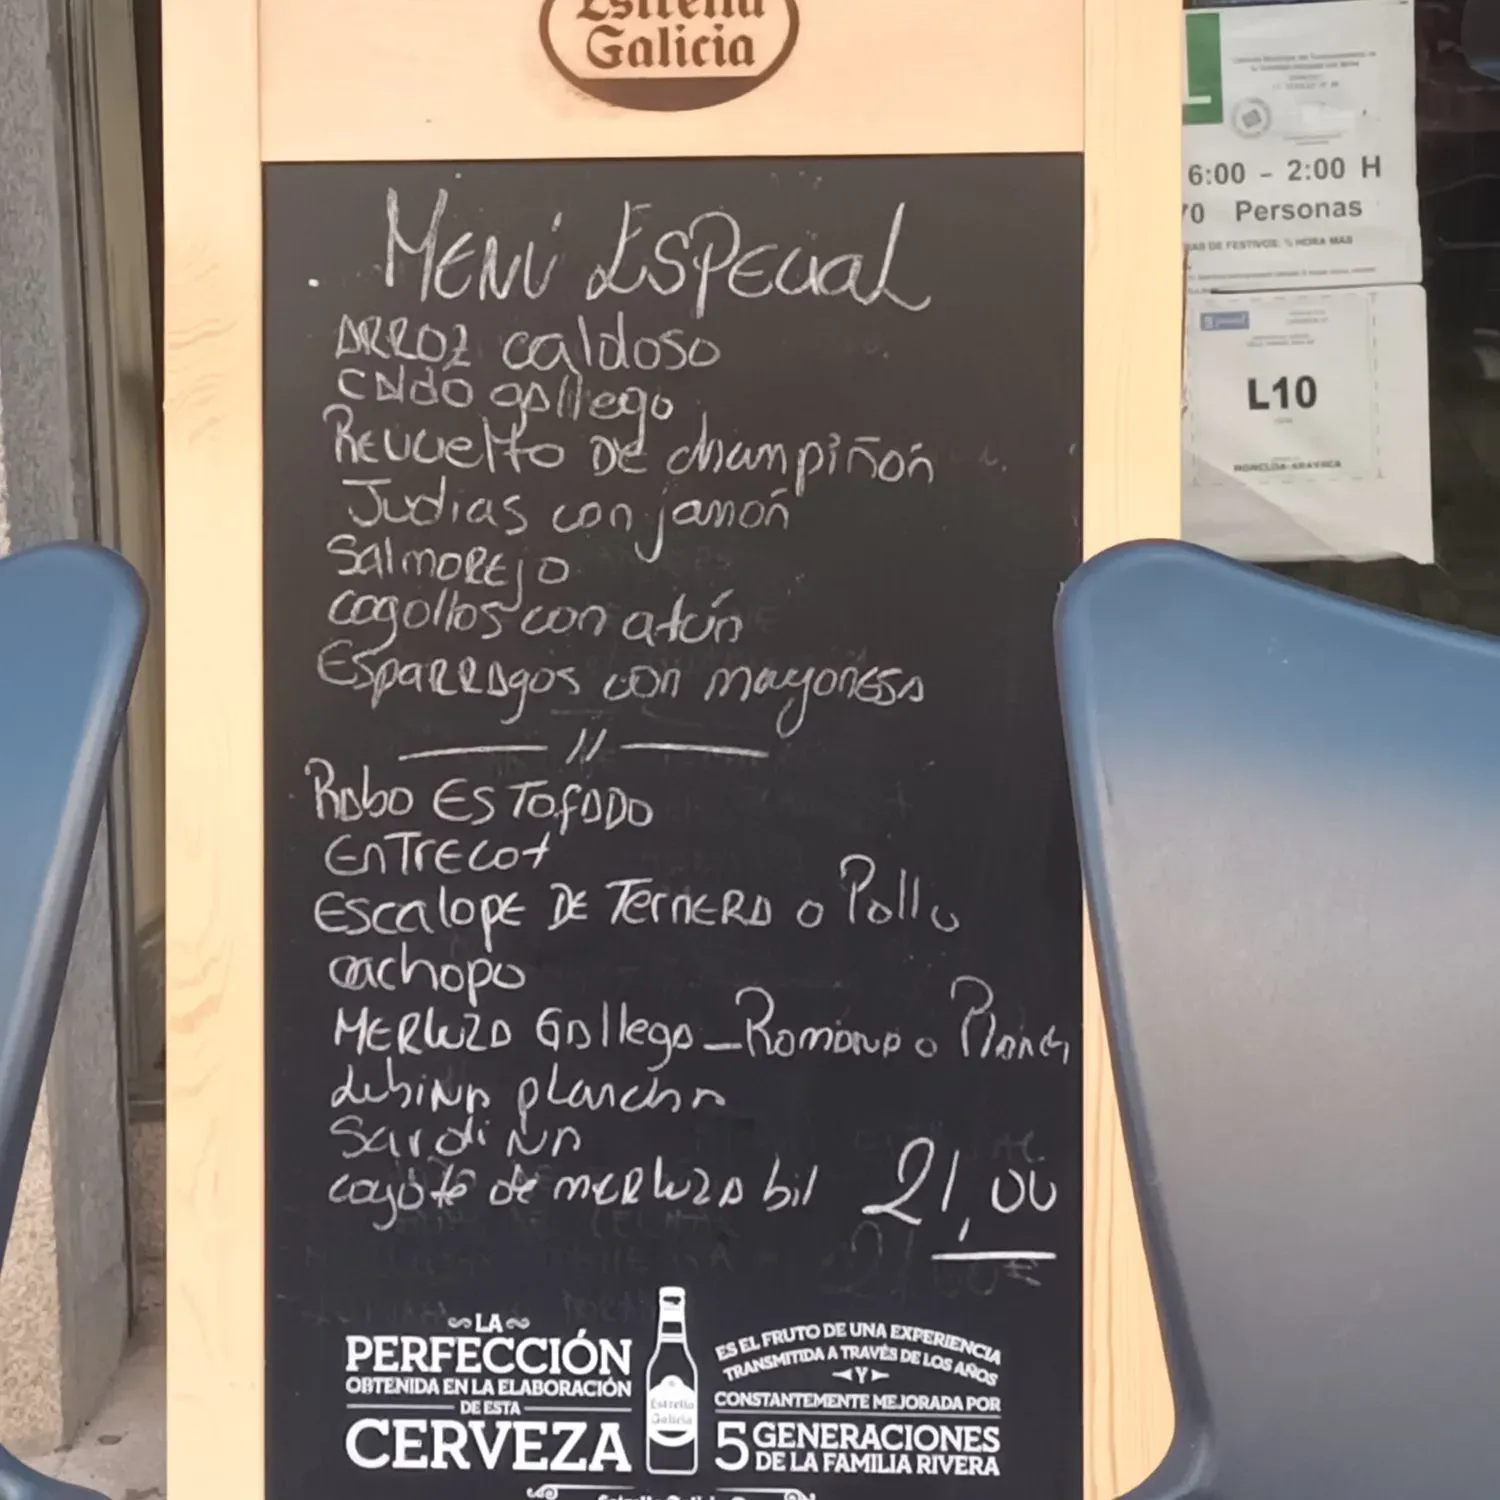 Estrella
Galicia
MENÚ ESPECIAL
ARROZ caldoso
CALDO gallego
REVUELTO DE champiñón
Judias con jamón
SALMOREJO
cogollos con atún
ESPARRAGOS con mayonesa
//
Rabo ESTOFADO
ENTRECOT
ESCALOPE DE TERNERA o Pollo
cachopo
MERLUZA GALLEGA - ROMANA o Planch
LUBINA plancha
SARDINA
cogote de MERLUZA bil 21,00
LA
PERFECCIÓN
OBTENIDA EN LA ELABORACIÓN
DE ESTA
CERVEZA
Estrella
Galicia
ES EL FRUTO DE UNA EXPERIENCIA
TRANSMITIDA A TRAVÉS DE LOS AÑOS
Y
CONSTANTEMENTE MEJORADA POR
5 GENERACIONES
DE LA FAMILIA RIVERA
6:00 - 2:00 H
70 Personas
AS DE FESTIVOS, ½ HORA MAS
L10
MONCLOA-ARAVACA